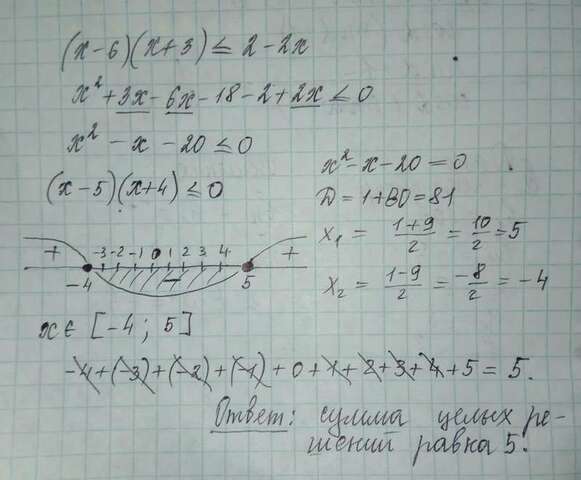 (x-6)(x+3) ≤ 2-2x
x² + 3x - 6x - 18 - 2 + 2x ≤ 0
x² - x - 20 ≤ 0
(x-5)(x+4) ≤ 0
x² - x - 20 = 0
D = 1+80 = 81
x₁ = (1+9)/2 = 10/2 = 5
x₂ = (1-9)/2 = -8/2 = -4
+ -3 -2 -1 0 1 2 3 4 +
-4 - 5
x ∈ [-4; 5]
-4+(-3)+(-2)+(-1)+0+1+2+3+4+5 = 5.
Ответ: сумма целых ре-
шений равна 5.